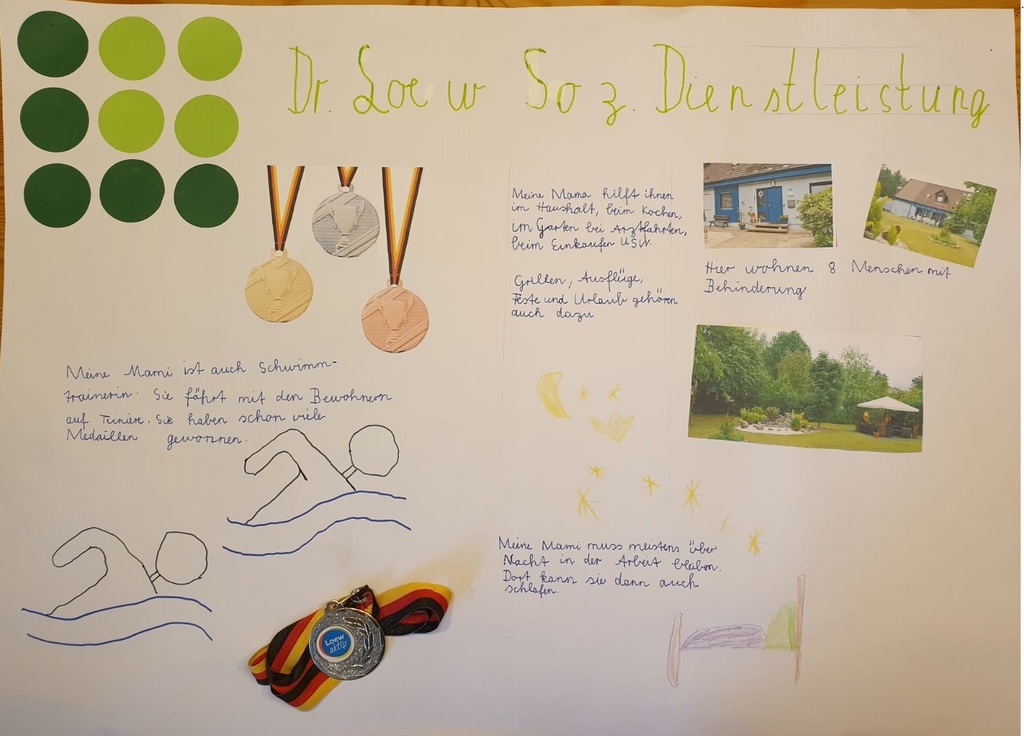 Dr. Loew Soz. Dienstleistung
Meine Mama hilft ihnen
im Haushalt, beim Kochen,
im Garten bei Arztfahrten,
beim Einkaufen usw.
Grillen, Ausflüge,
Feste und Urlaub gehören
auch dazu
Hier wohnen 8 Menschen mit
Behinderung
Meine Mami ist auch Schwimm-
trainerin. Sie fährt mit den Bewohnern
auf Turniere. Sie haben schon viele
Medaillen gewonnen.
Meine Mami muss meistens über
Nacht in der Arbeit bleiben.
Dort kann sie dann auch
schlafen.
Loew
aktiv